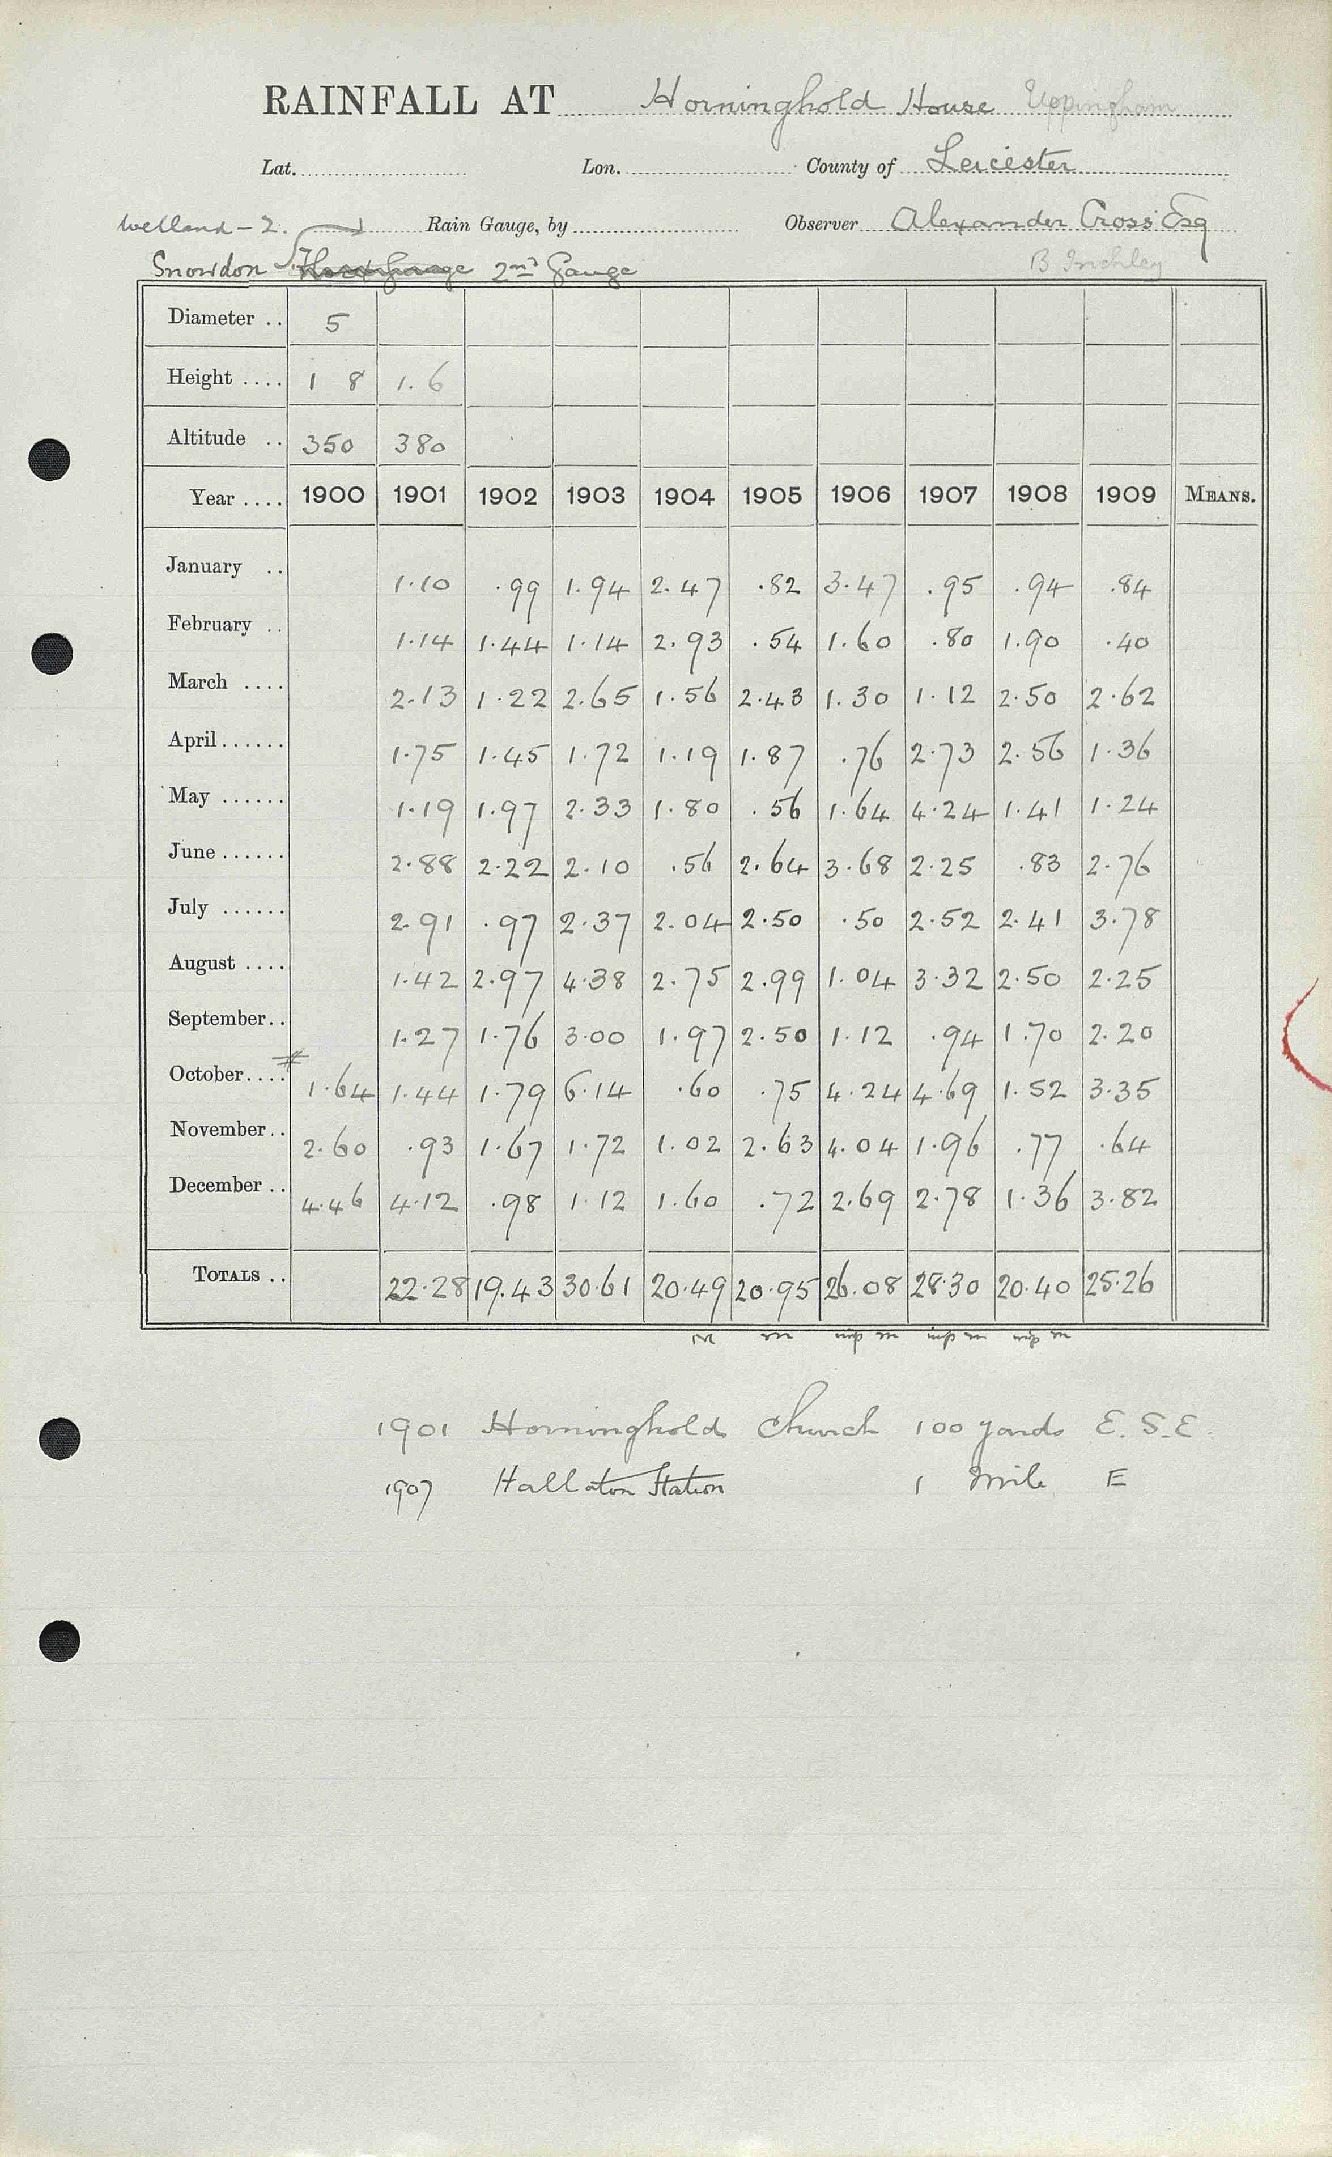 RAINFALL AT Horninghold House Uppingham
Lat. Lon. County of Leicester
Welland - 2. Rain Gauge, by Observer Alexander Cross Esq
Snowdon 2nd Gauge B Inchley
Diameter .. 5
Height .... 1 8 1.6
Altitude .. 350 380
Year .... 1900 1901 1902 1903 1904 1905 1906 1907 1908 1909 MEANS.
January .. 1.10 .99 1.94 2.47 .82 3.47 .95 .94 .84
February .. 1.14 1.44 1.14 2.93 .54 1.60 .80 1.90 .40
March .... 2.13 1.22 2.65 1.56 2.43 1.30 1.12 2.50 2.62
April...... 1.75 1.45 1.72 1.19 1.87 .76 2.73 2.56 1.36
May ...... 1.19 1.97 2.33 1.80 .56 1.64 4.24 1.41 1.24
June...... 2.88 2.22 2.10 .56 2.64 3.68 2.25 .83 2.76
July ...... 2.91 .97 2.37 2.04 2.50 .50 2.52 2.41 3.78
August .... 1.42 2.97 4.38 2.75 2.99 1.04 3.32 2.50 2.25
September.. 1.27 1.76 3.00 1.97 2.50 1.12 .94 1.70 2.20
October.... 1.64 1.44 1.79 6.14 .60 .75 4.24 4.69 1.52 3.35
November.. 2.60 .93 1.67 1.72 1.02 2.63 4.04 1.96 .77 .64
December .. 4.46 4.12 .98 1.12 1.60 .72 2.69 2.78 1.36 3.82
TOTALS .. 22.28 19.43 30.61 20.49 20.95 26.08 28.30 20.40 25.26
1901 Horninghold Church 100 yards E.S.E.
1907 Hallaton Station 1 Mile E